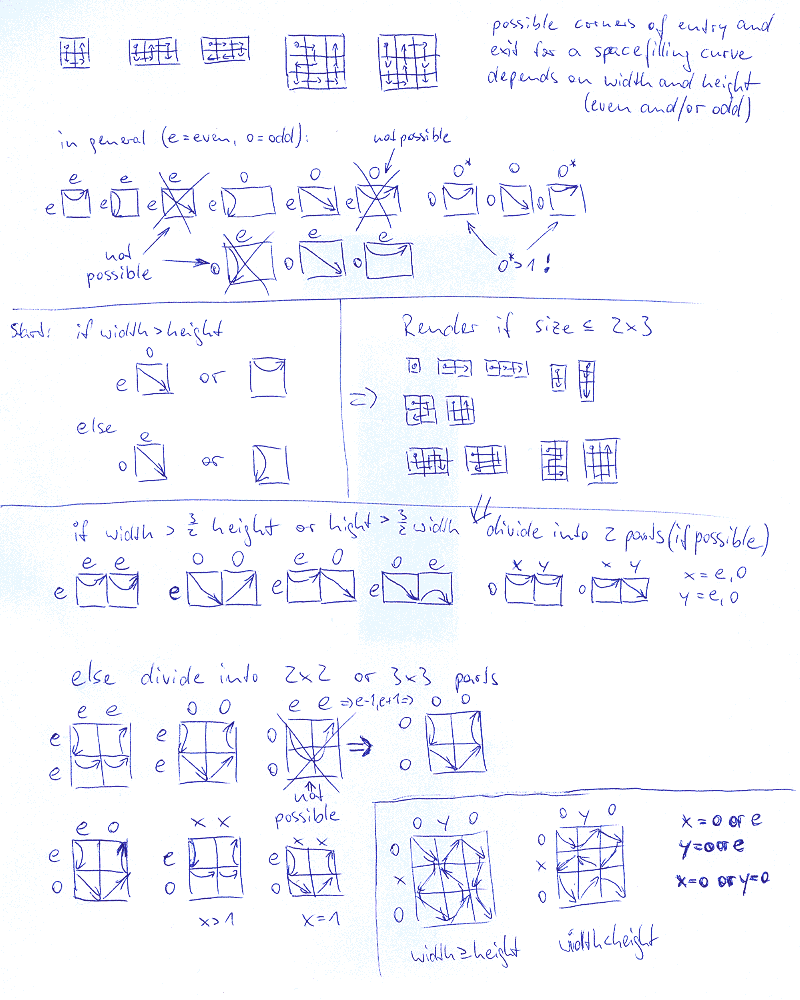 possible corners of entry and
exit for a spacefilling curve
depends on width and height
(even and/or odd)
in general (e=even, o=odd):
not possible
e e e o o o o* o o*
e e e e e e o o o
not possible
e e
o o o
o*>1!
Start: if width>height
o
e or
else
e
o or
Render if size ≤ 2x3
=>
if width > 3/2 height or hight > 3/2 width divide into 2 parts (if possible)
e e o o e o o e x y x y
e e e e o o
x = e,o
y = e,o
else divide into 2x2 or 3x3 parts
e e o o e e =>e-1,e+1=> o o
e e o o
e e o o
not
possible
e o x x x x
e e e
o o o
x>1 x=1
o y o o y o
o o
x x
o o
width≥height width<height
x = o or e
y = o or e
x=o or y=o